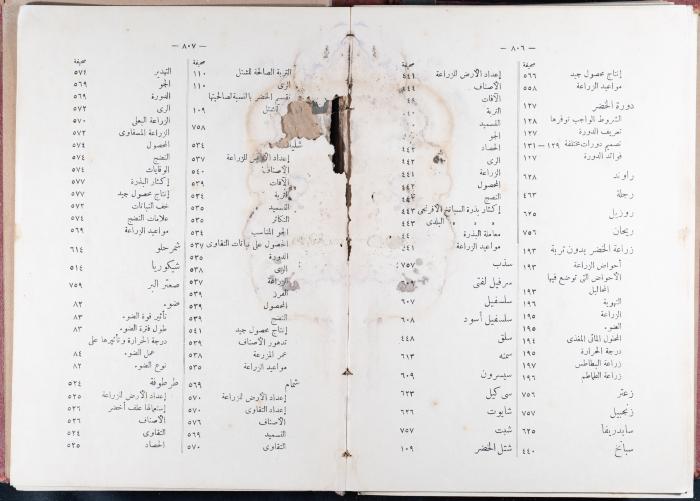 — ٨٠٦ —
صحيفة
إنتاج محصول جيد ٥٦٦
مواعيد الزراعة ٥٥٨
دورة الخضر ١٢٧
الشروط الواجب توفرها ١٢٨
تعريف الدورة ١٢٧
تصميم دورات مختلفة ١٢٩ — ١٣١
فوائد الدورة ١٢٧
راوند ٦٢٨
رجلة ٤٦٣
روزيل ٦٢٥
ريحان ٧٥٦
زراعة الخضر بدون تربة ١٩٣
أحواض الزراعة ١٩٣
الأحواض التى توضع فيها
المحاليل ١٩٣
التهوية ١٩٦
الزراعة ١٩٥
الضوء ١٩٥
المحلول المائى المغذى ١٩٤
درجة الحرارة ١٩٥
زراعة البطاطس ١٩٧
زراعة الطماطم ١٩٦
زعتر ٧٥٦
زنجبيل ٧٥٧
سابدريفا ٦٢٥
سبانخ ٤٤٠
صحيفة
إعداد الأرض للزراعة ٤٤١
الأصناف
الآفات
التربة
التسميد
الجو
الحصاد ٤٤٢
الرى ٤٤٢
الزراعة ٤٤١
المحصول ٤٤٢
النضج ٤٤٢
إكثار بذرة السبانخ الافرنجى ٤٤٣
» » » البلدى
معاملة البذرة
مواعيد الزراعة ٤٤١
سذب ٧٥٧
سرفيل لفتى
سلسفيل ٦٠٧
سلسفيل أسود ٦٠٨
سلق ٤٤٨
سمنه ٦١٣
سيسرون ٦٠٩
سى كيل ٦٢٣
شايوت ٦٢٦
شبت ٧٥٧
شتل الخضر ١٠٩
— ٨٠٧ —
صحيفة
التربة الصالحة للشتل ١١٠
الرى ١١٠
تقسيم الخضر بالنسبة لصالحيتها
للشتل ١٠٩
٧٥٨
٥٣٤
إعداد الأرض للزراعة ٥٣٧
الأصناف ٥٤٠
الآفات ٥٣٩
التربة ٥٣٤
التسميد ٥٣٥
التكاثر ٥٣٥
الجو المناسب ٥٣٤
الحصول على نباتات التقاوى ٥٣٧
الدورة ٥٣٥
الرى ٥٣٨
الزراعة ٥٣٧
الفرز ٥٣٩
المحصول ٥٣٩
النضج ٥٣٩
إنتاج محصول جيد ٥٤١
تدهور الأصناف ٥٣٩
عمر المزرعة ٥٣٨
مواعيد الزراعة ٥٣٥
شمام ٥٦٩
إعداد الأرض للزراعة ٥٧٠
إعداد التقاوى ٥٧٠
الأصناف ٥٧٦
التسميد ٥٦٩
التقاوى ٥٧٠
صحيفة
التهدير ٥٧٤
الجو ٥٦٩
الدورة ٥٦٩
الرى ٥٧٢
الزراعة البعلى ٥٧٠
الزراعة المسقاوى ٥٧٢
المحصول ٥٧٤
النضج ٥٧٤
الوقايات ٥٧٤
إكثار البذرة ٥٧٧
إنتاج محصول جيد ٥٧٧
خف النباتات ٥٧٢
علامات النضج ٥٧٤
مواعيد الزراعة ٥٦٩
شمرحلو ٦١٤
شيكوريا ٥١٤
صعتر البر ٧٥٩
ضوء ٨٢
تأثير قوة الضوء ٨٣
طول فترة الضوء ٨٣
درجة الحرارة وتأثيرها على
عمل الضوء ٨٤
نوع الضوء ٨٢
طرطوفة ٥٢٤
إعداد الأرض للزراعة ٥٢٥
إستعمالها علف أخضر ٥٢٦
الأصناف ٥٢٦
التقاوى ٥٢٤
الحصاد ٥٢٥